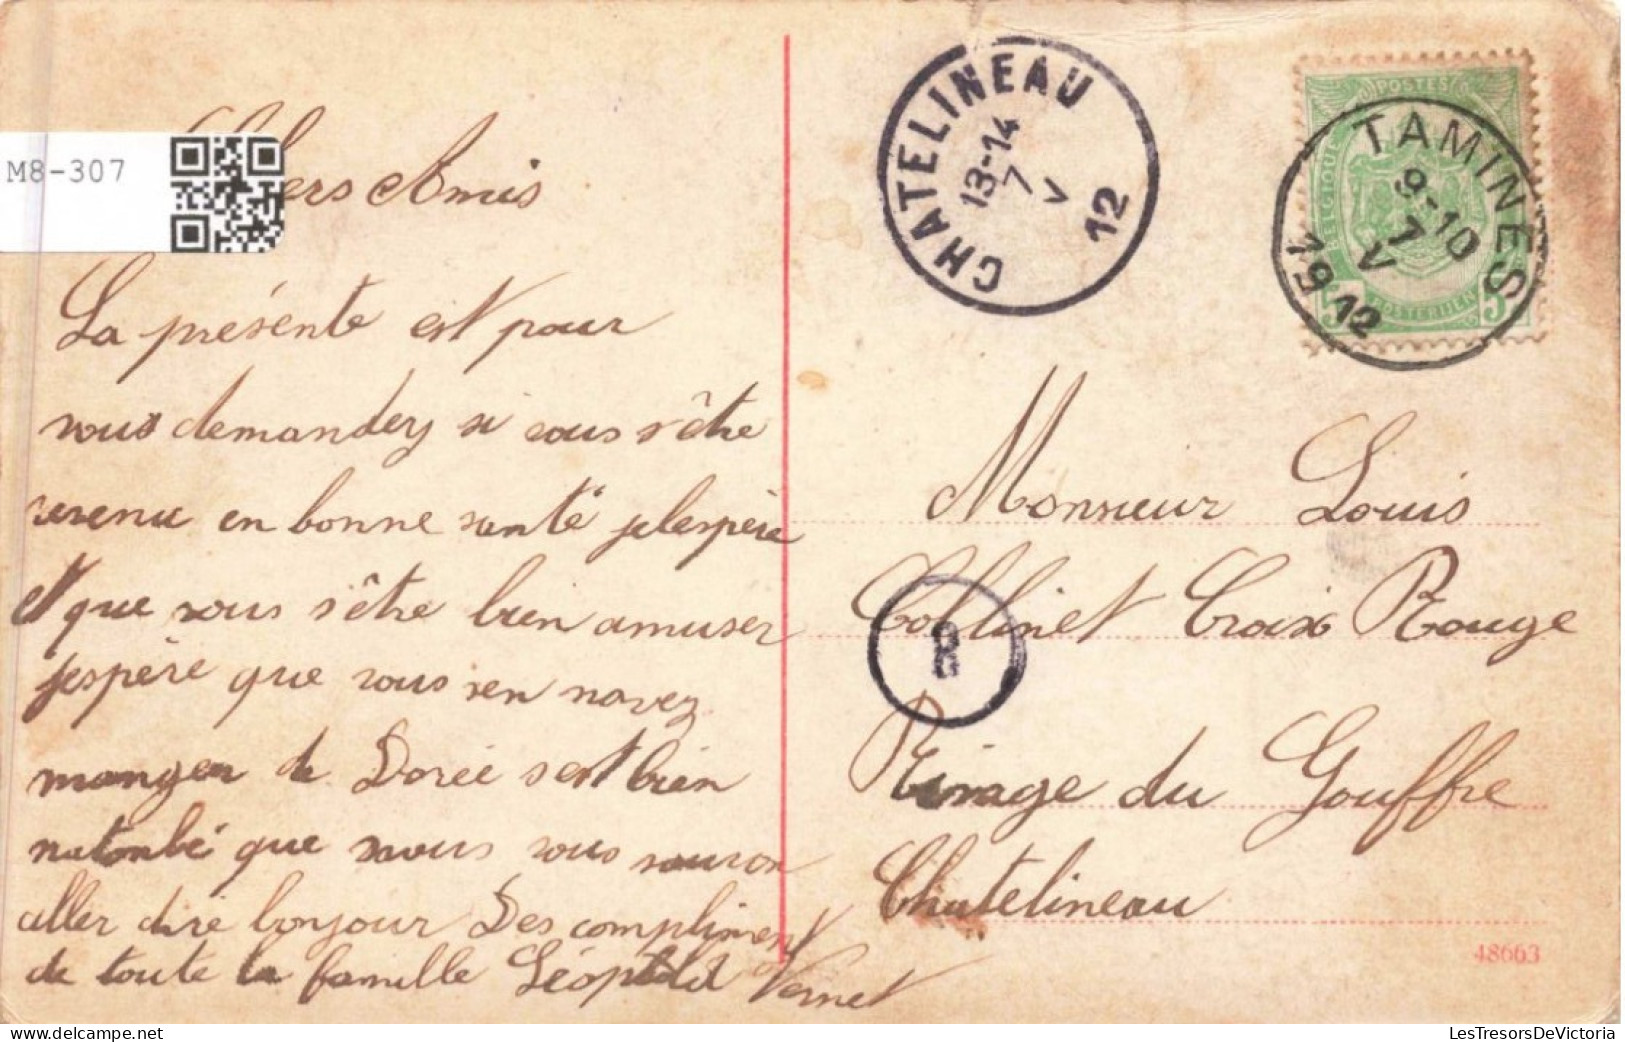 M8-307
Chers Amis
La présente est pour
vous demandez si vous s'ètre
revenu en bonne santé je l'espère
et que vous s'ètre bien amuser
j'espère que vous s'en navez
manger de Dorée s'est bien
matombé que vous
aller dire bonjour Des compliment
de toute la famille Léopold Vernet
CHATELINEAU
13-14
7
V
12
POSTES
BELGIQUE
POSTERIJEN
5
5
TAMINES
9-10
7
V
1912
Monsieur Louis
Collinet Croix Rouge
Rivage du Gouffre
Chatelineau
48663
LesTresorsDeVictoria